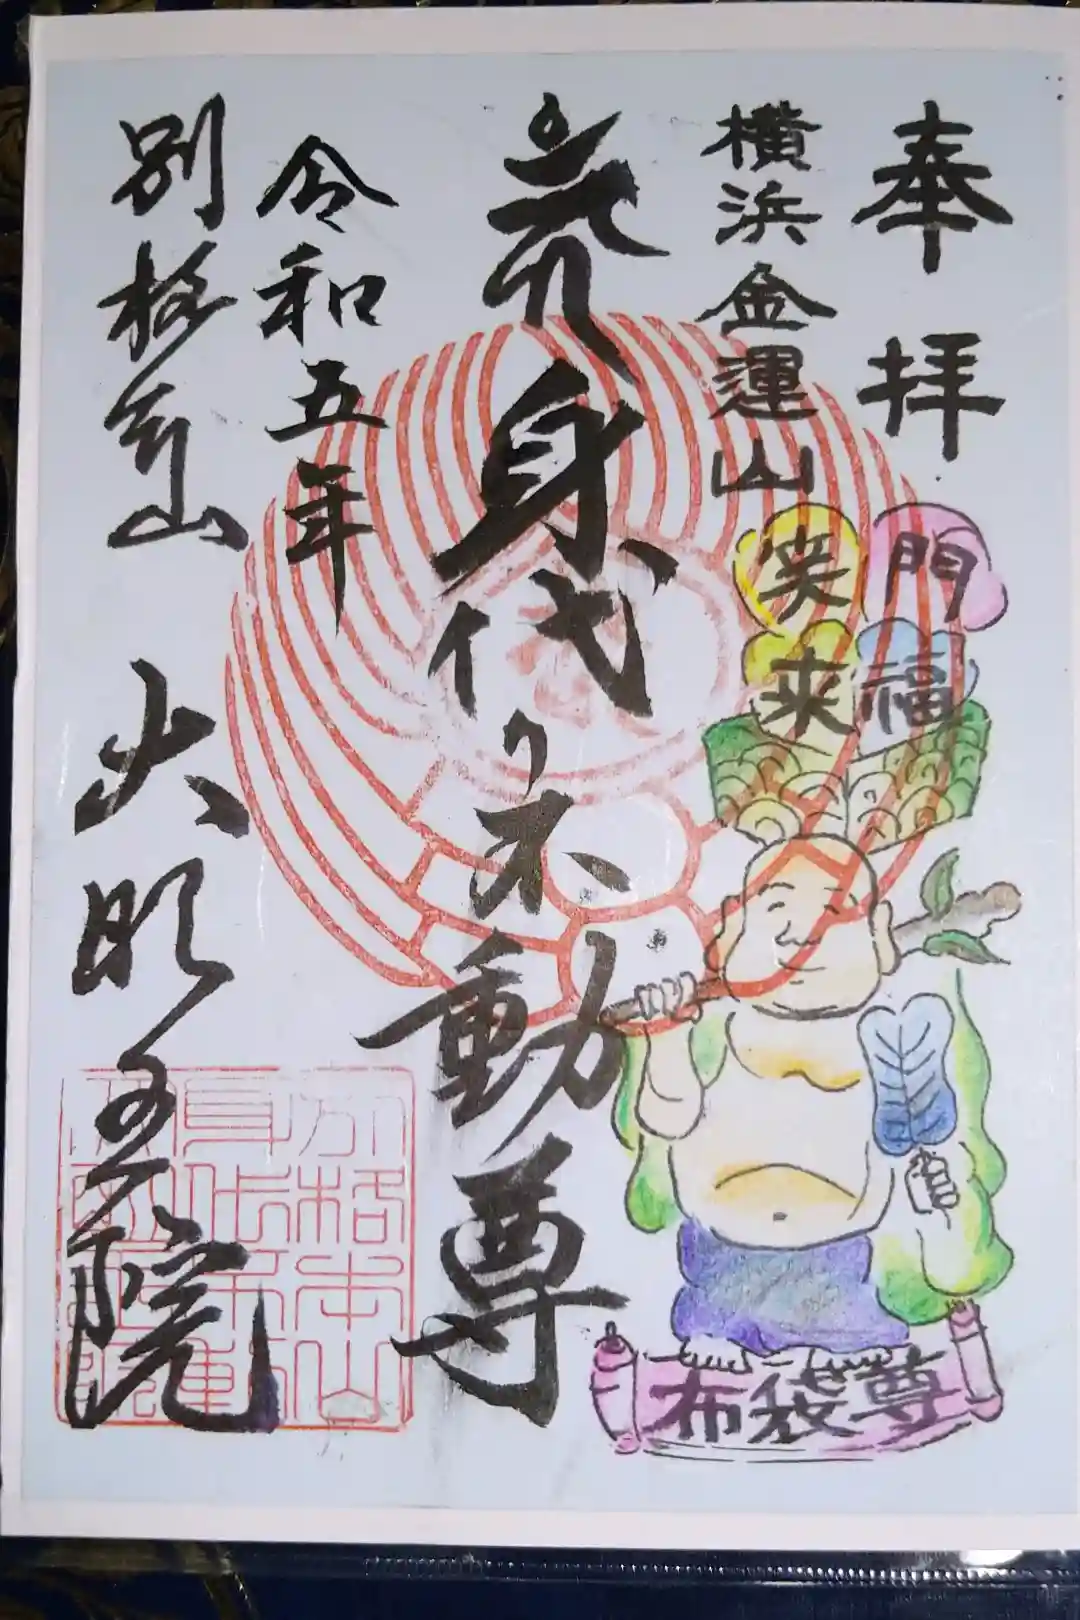 奉拝
横浜金運山
門福
笑来
身代り不動尊
令和五年
別格本山
大明王院
布袋尊